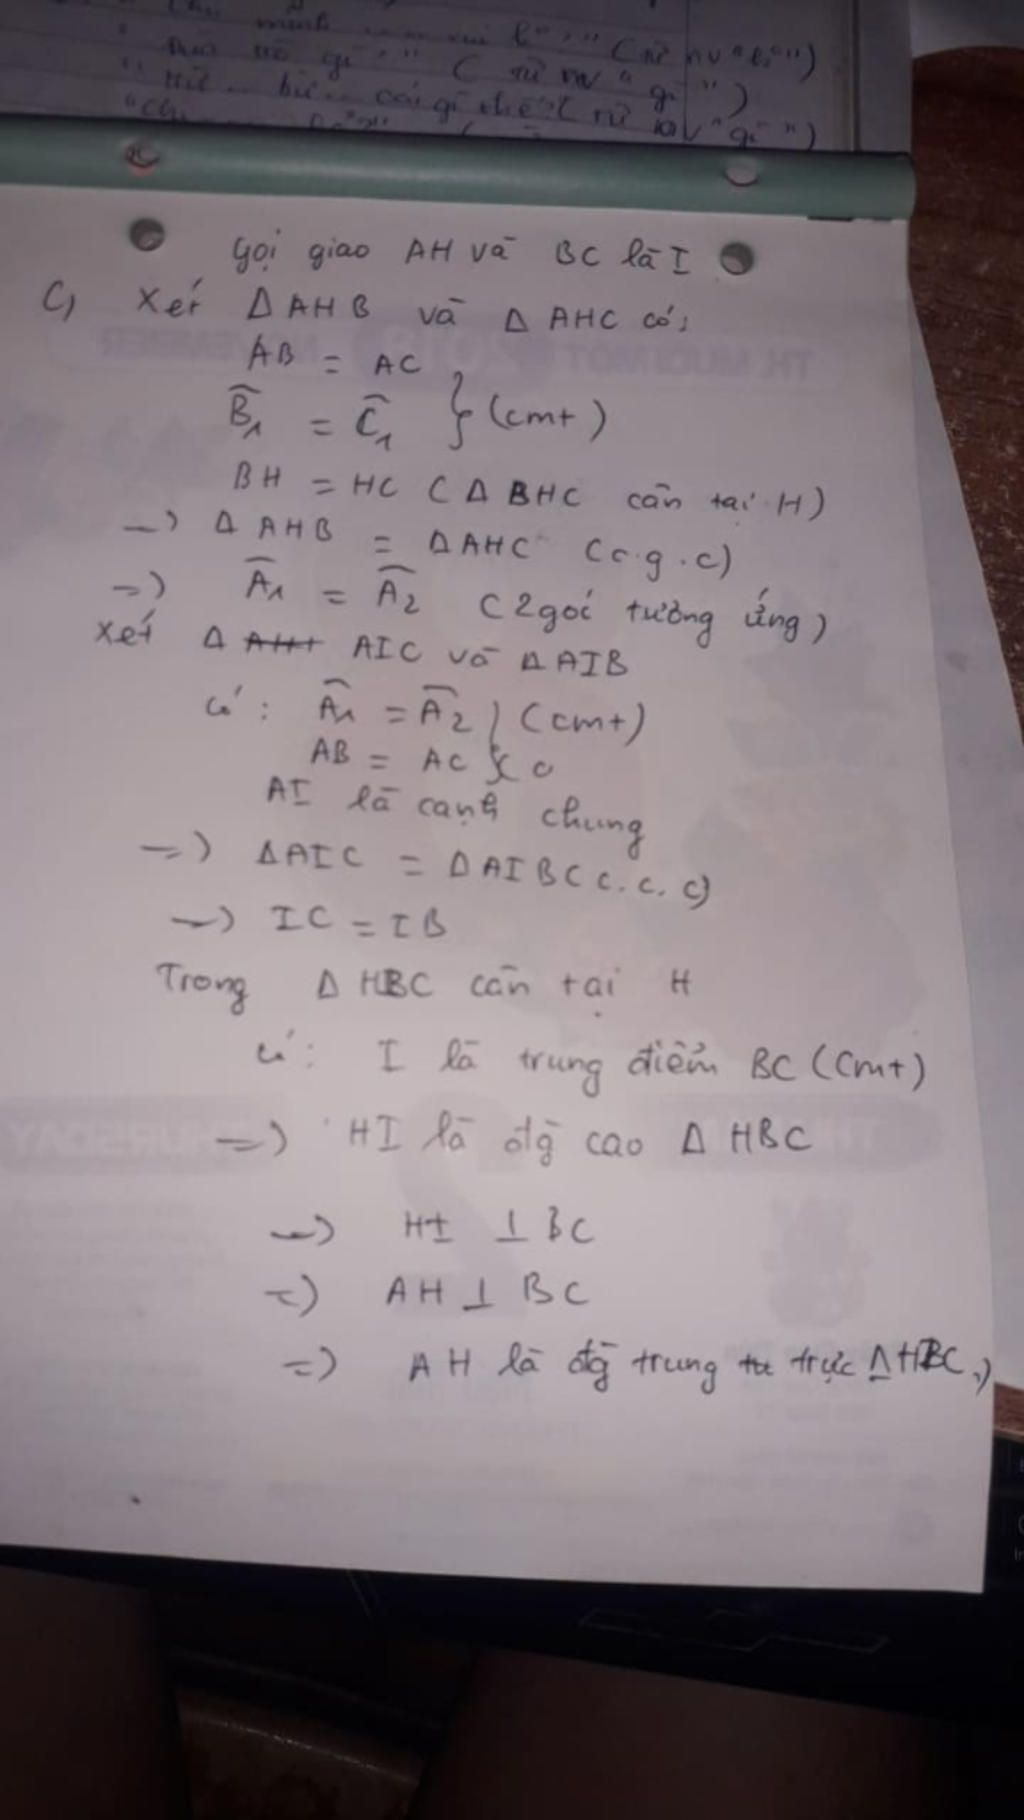 minh (từ nv "
gì " ( từ nv " gì " )
bü.. cái gì thế? ( từ nv " gì " )
Gọi giao AH và BC là I
C, Xét Δ AHB và Δ AHC có:
AB = AC
B̂₁ = Ĉ₁ } (cmt)
BH = HC ( Δ BHC cân tại H)
=> Δ AHB = Δ AHC (c.g.c)
=> Â₁ = Â₂ ( 2 góc tường ứng )
Xét Δ AIC và Δ AIB
có : Â₁ = Â₂ } (cmt)
AB = AC
AI là cạnh chung
=> Δ AIC = Δ AIB ( c. c. c)
=> IC = IB
Trong Δ HBC cân tại H
có: I là trung điểm BC (cmt)
=> HI là đg cao Δ HBC
=> HI ⊥ BC
=> AH ⊥ BC
=> AH là đg trung trực Δ HBC